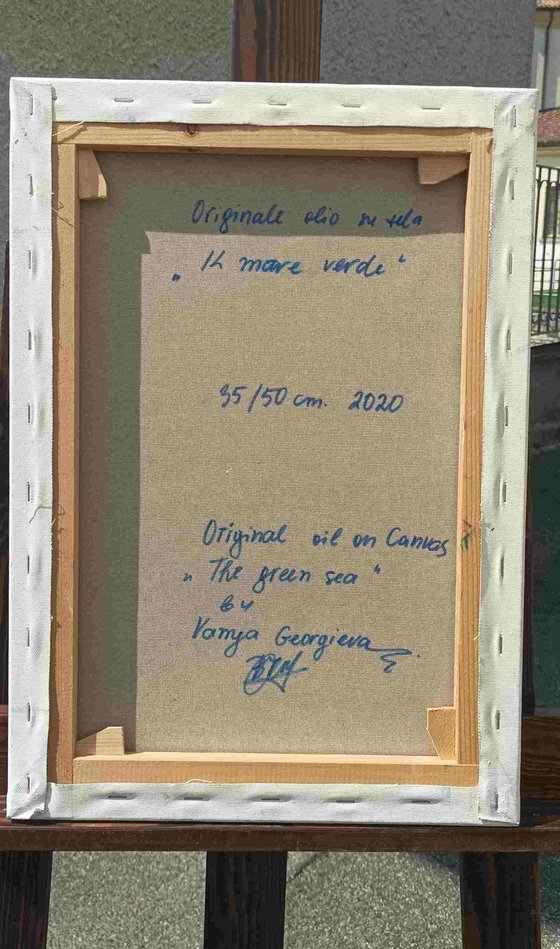 Originale olio su tela
„Il mare verde“
35/50 cm. 2020
Original oil on Canvas
„The green sea“
by
Vanya Georgieva